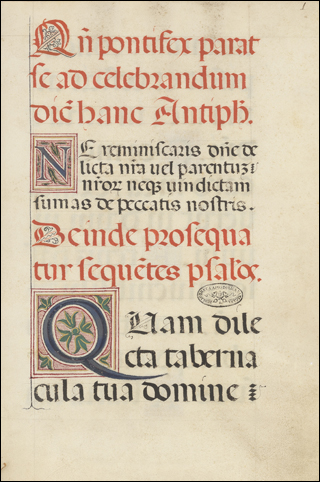 1
Qn̄ pontifex parat
se ad celebrandum
dic̄ hanc Antiph.
NE reminiscaris dn̄e de
licta nr̄a vel parentuz
nr̄or neqz vindictam
sumas de peccatis nostris.
Deinde prosequa
tur sequētes psalōs.
QUam dile
cta taberna
cula tua domine